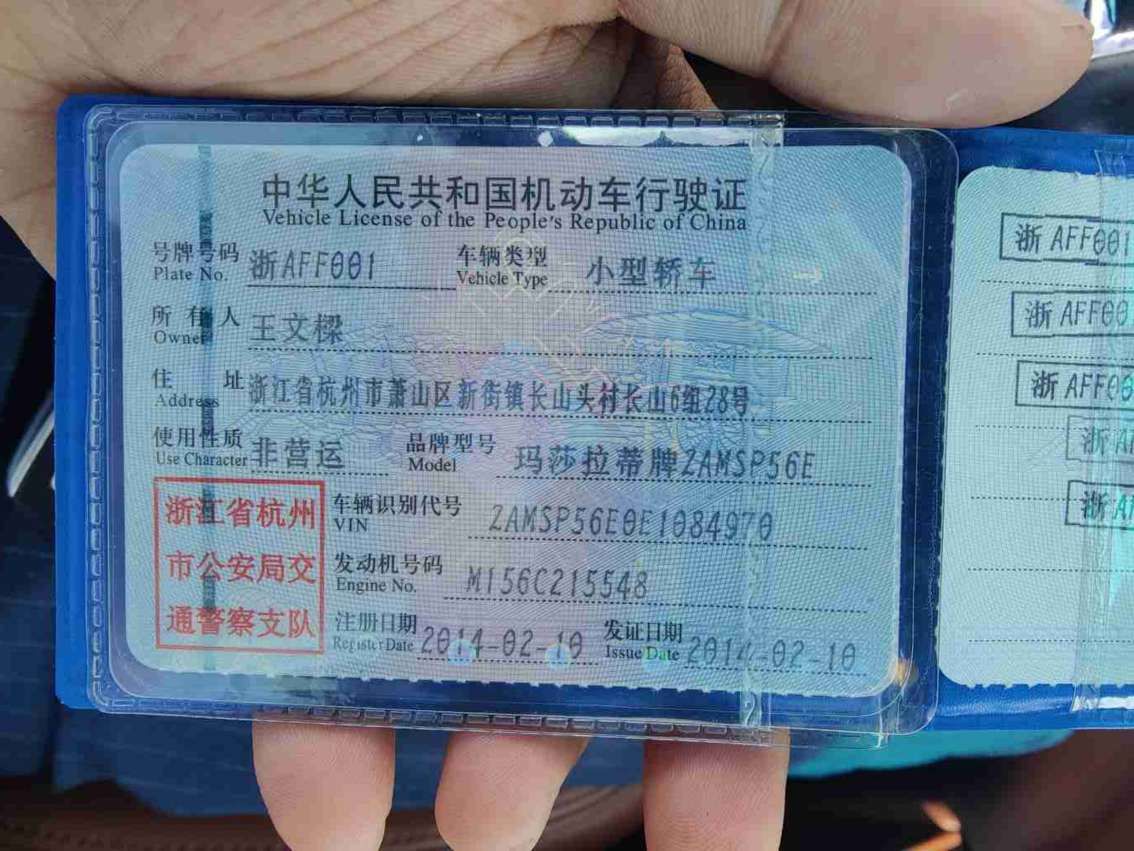 中华人民共和国机动车行驶证
Vehicle License of the People's Republic of China
号牌号码 浙AFF001 车辆类型 小型轿车
Plate No. Vehicle Type
所有人 王文樑
Owner
住址 浙江省杭州市萧山区新街镇长山头村长山6组28号
Address
使用性质 非营运 品牌型号 玛莎拉蒂牌ZAMSP56E
Use Character Model
浙江省杭州
市公安局交
通警察支队
车辆识别代号 ZAMSP56E0E1084970
VIN
发动机号码 M156C215548
Engine No.
注册日期 2014-02-10 发证日期 2014-02-10
Register Date Issue Date
浙AFF001
浙AFF00
浙AFF00
浙A
浙A